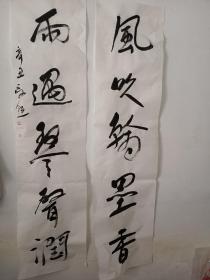 風吹翰墨香
雨過琴聲潤